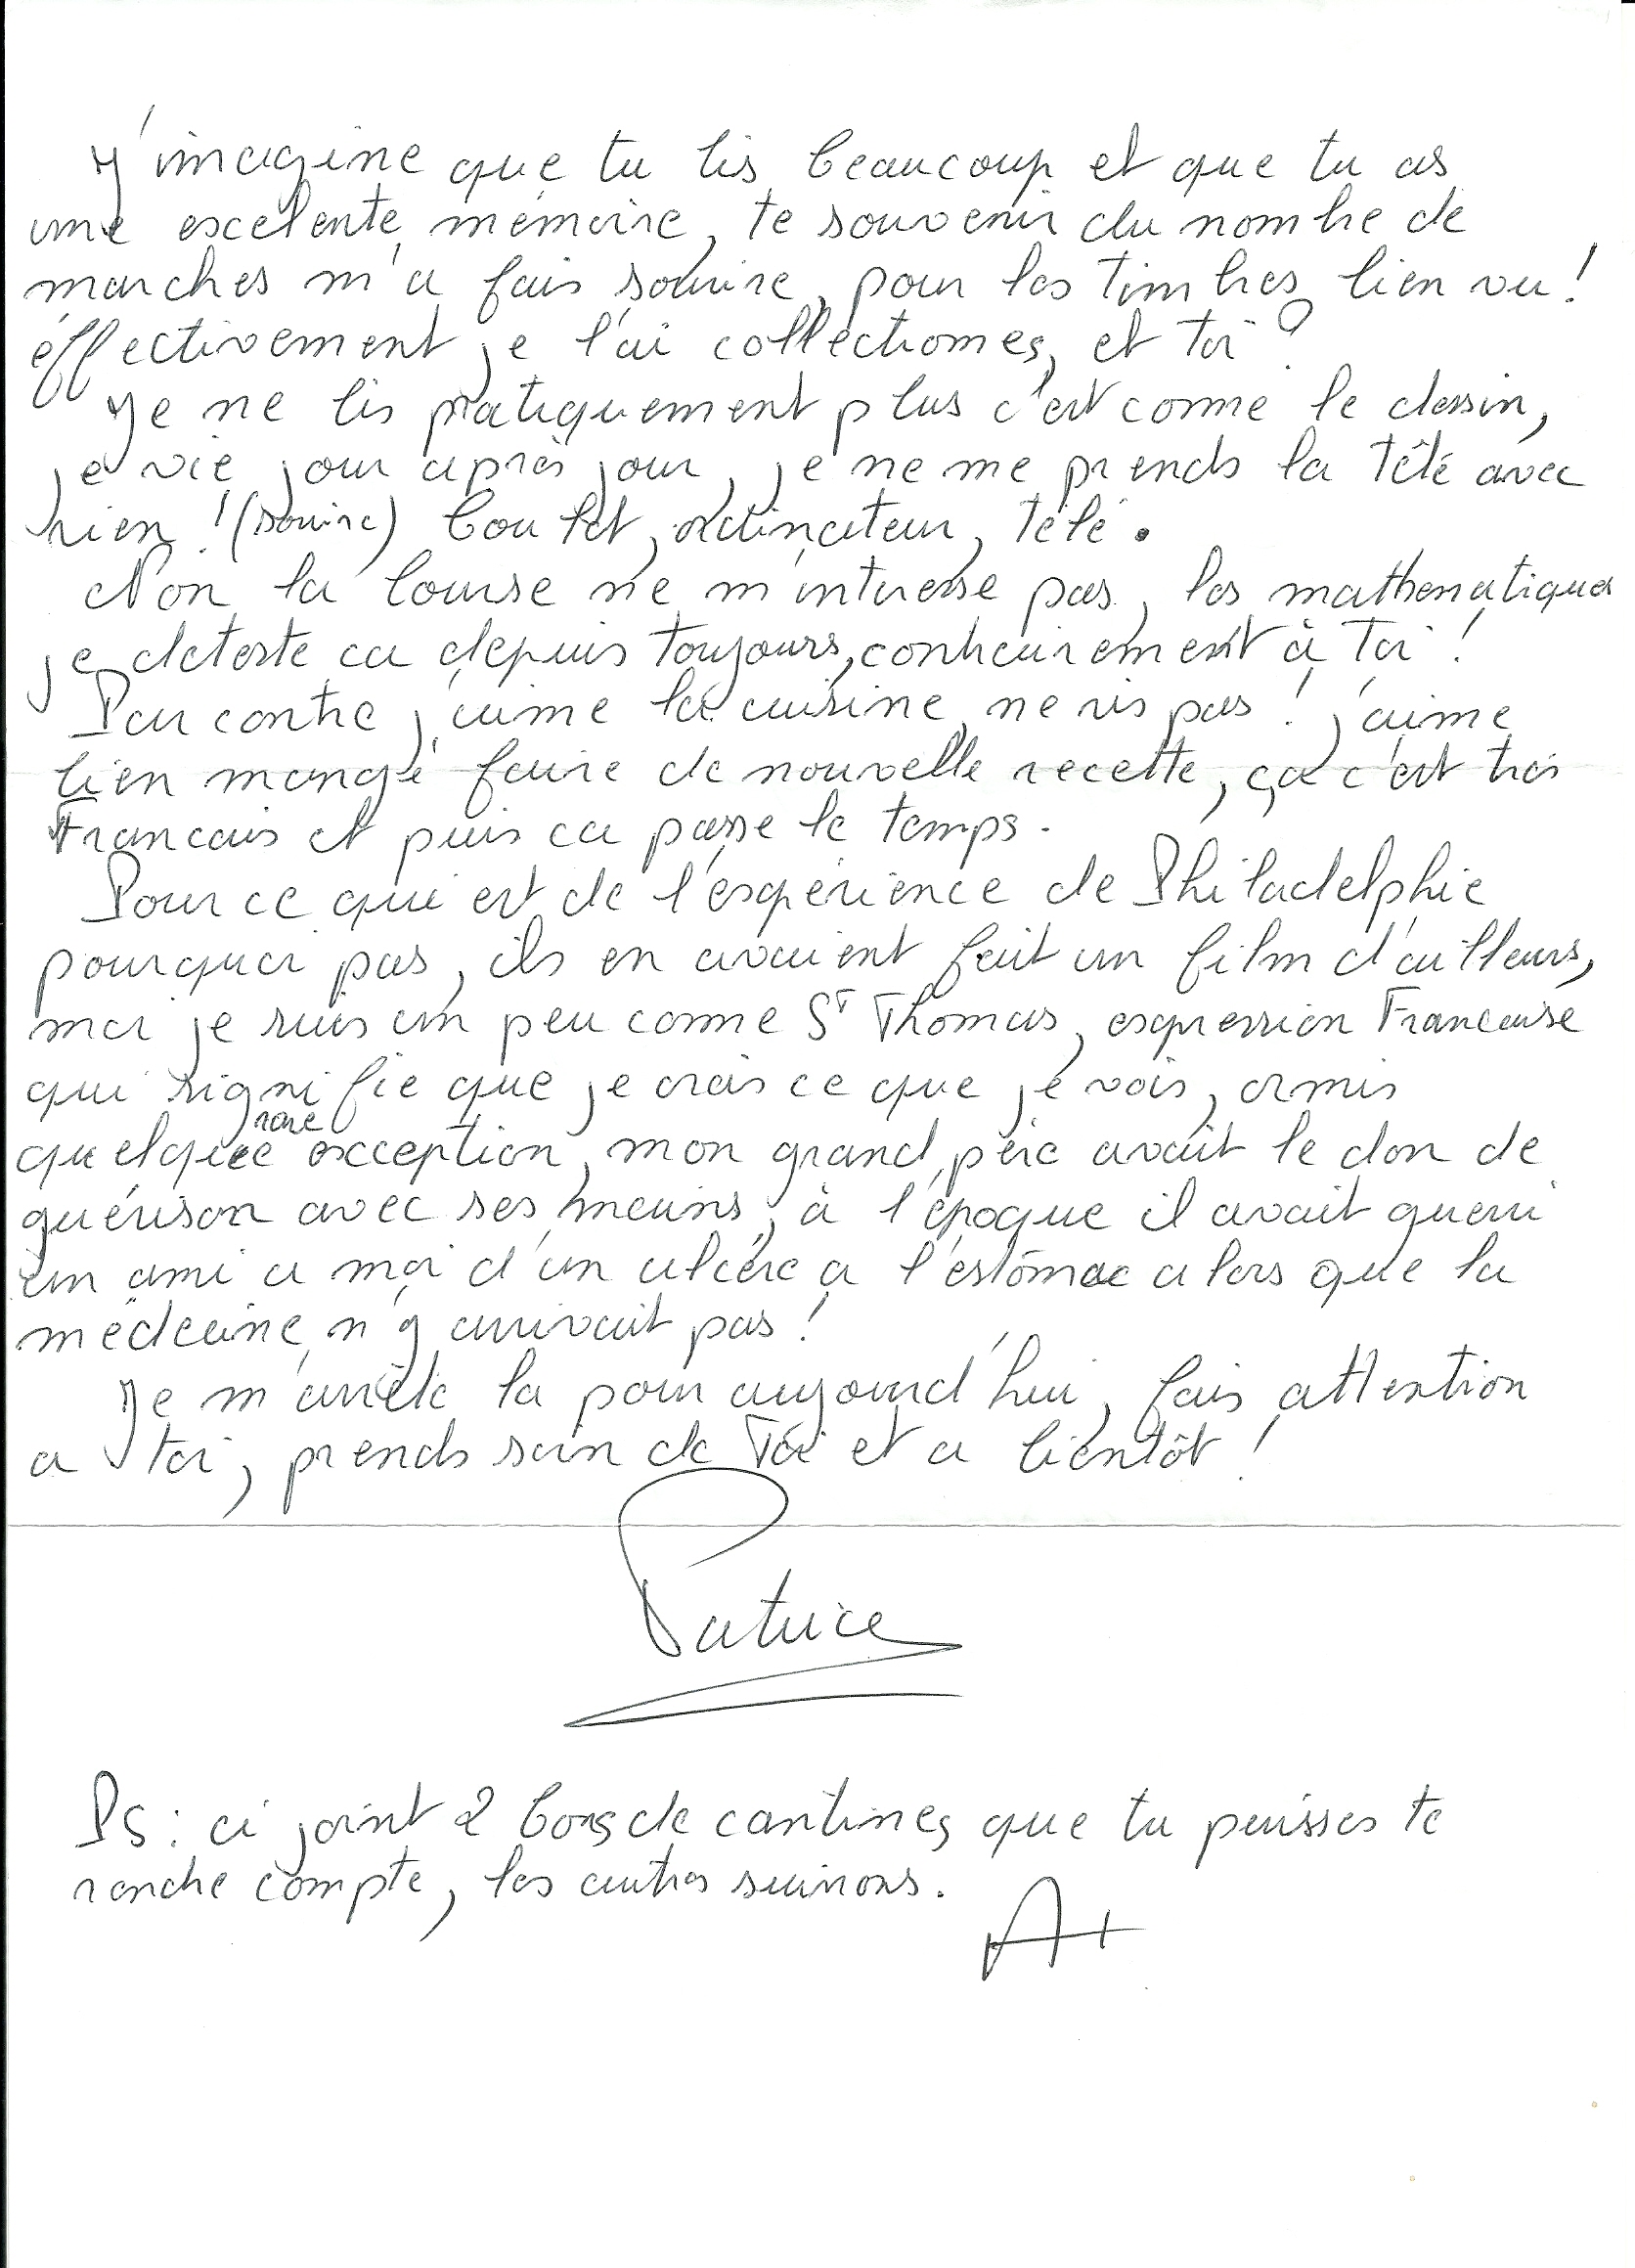 J'imagine que tu lis beaucoup et que tu as
une excelente mémoire, te souvenir du nombre de
marches m'a fais sourire, pour les timbres bien vu!
éffectivement je l'ai collectionnes, et toi?
Je ne lis pratiquement plus c'est comme le dessin,
je vie jour après jour, je ne me prends la tête avec
rien! (sourire) boulot, ordinateur, télé.
Non la bourse ne m'interesse pas, les mathematiques
je deteste ca depuis toujours, contrairement à toi!
Par contre j'aime la cuisine, ne ris pas! j'aime
bien mangé faire de nouvelle recette, ça c'est très
Francais et puis ca passe le temps.
Pour ce qui est de l'expérience de Philadelphie
pourquoi pas, ils en avaient fait un film d'ailleurs,
moi je suis un peu comme St Thomas, expression Francaise
qui signifie que je crois ce que je vois, ormis
quelque rare exception, mon grand père avait le don de
guérison avec ses mains, à l'époque il avait gueri
un ami a moi d'un ulcère a l'estomac alors que la
médecine n'y arrivait pas!
Je m'arrête la pour aujourd'hui, fais attention
a toi, prends soin de Toi et a bientôt!
Patrice
Ps: ci joint 2 bons de cantines que tu puisses te
rendre compte, les autres suivrons.
A+